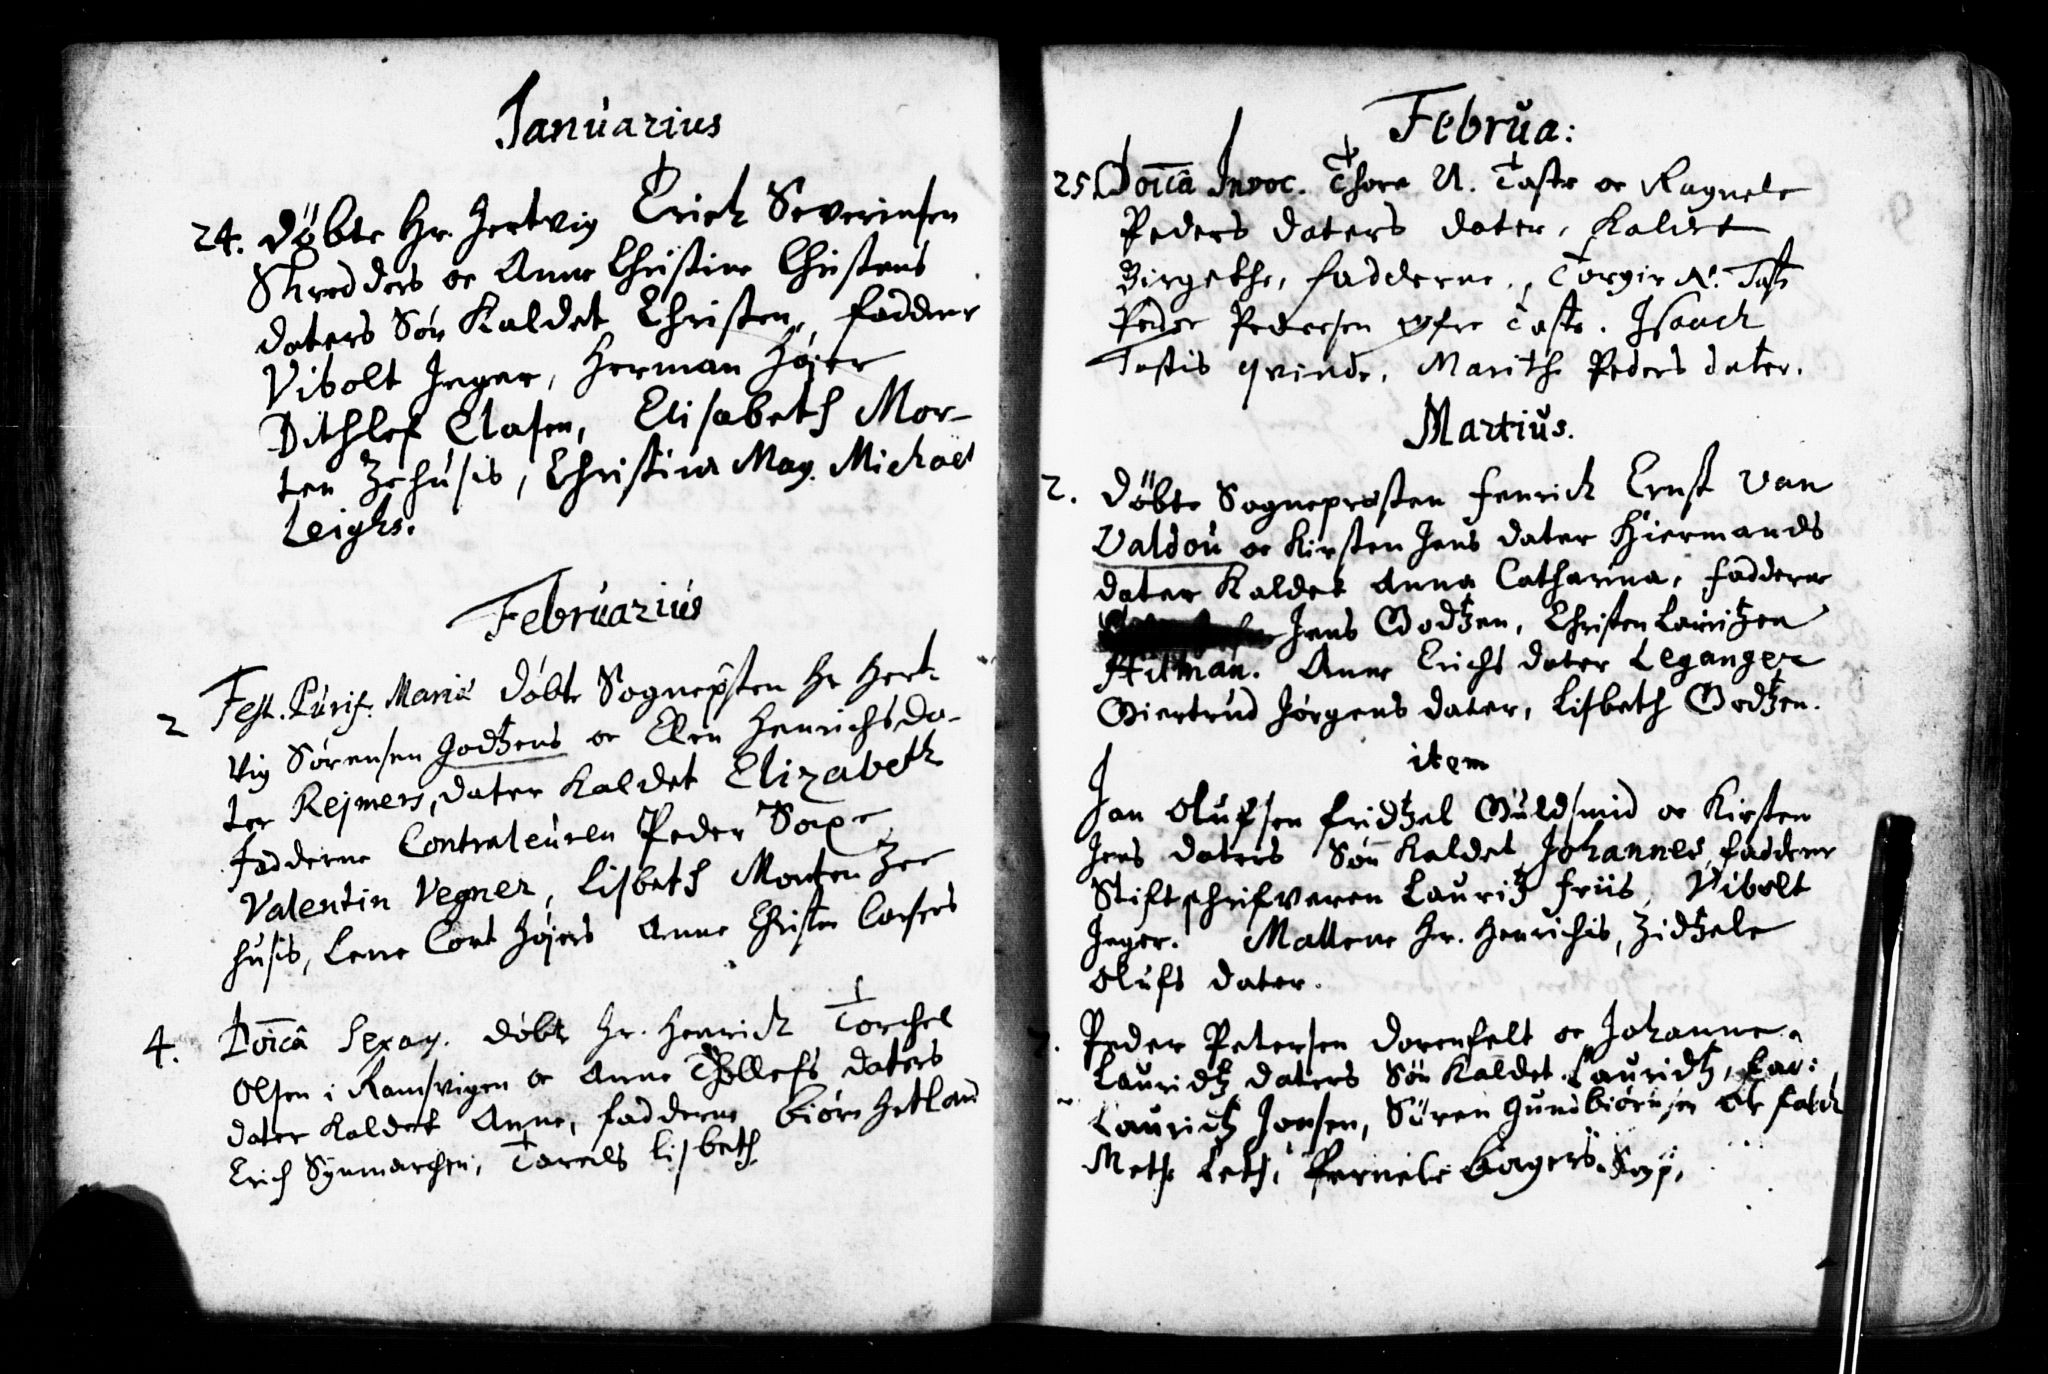 Januarius
24. Døbte Hr. Hertvig Erich Severinsen
Skredders oc Anne Christine Christens
daters Søn Kaldet Christen, faddere
Vibolt Jeger, Herman Højer
Dithlef Clasen, Elisabeth Mor-
ten Zehusis, Christina Mag. Michael
Leighs.
Februarius
2 Fest. Purif. Mariæ døbte Sognepsten Hr Hert-
vig Sørensen Godtzens oc Ellen Henrichsda-
ter Rejmers, dater Kaldet Elizabeth
Fadderne Contraleuren Peder Saxe
Valentin Vegner, Lisbeth Morten Zee
husis, Lene Cort Højers Anne Christen
4. Doicâ Sexag. døbt Hr. Henrich Torchel
Olsen i Ramsvigen oc Anne Thollefs daters
dater Kaldet Anne, fadderne biørn Hetland
Erich Synmarchen, Tarals Lisbeth
Februa:
25. Doicâ Invoc. Thore N. Taste oc Ragnele
Peders daters dater, Kaldet
Birgethe, fadderne, Torgir N. Tast
Peder Pedersen øfre Taste. Isaach
Tastis qvinde, Marithe Peders dater.
Martius.
2. Døbte Sognepresten Fenrich Ernst Van
Valdou oc Kirsten Jens dater Hiermands
dater Kaldet Anna Catharina, fadderne
Jens Godtzen, Christen Lauritzen
Hitman. Anne Erichs dater Leganger
Giertrud Jørgens dater, Lisbeth Godtzen.
item
Jan Olufsen fridtzel Guldsmid oc Kirsten
Jens daters Søn Kaldet Johannes, faddere
Stiftschrifveren Lauritz friis, Vibolt
Jeger. Mallene Hr. Henrichis, Zidtzele
Olufs dater.
Peder Petersen Dorenfelt oc Johanne
Lauridtz daters Søn Kaldet Lauridtz,
Lauritz Jonsen, Søren Gundbiørnsen oc
Methe Leth, Pernele bagers.